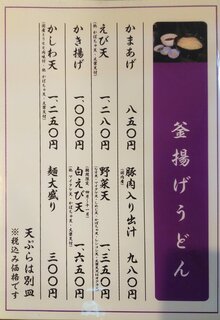 釜揚げうどん
かまあげ 八五〇円
えび天 一、二八〇円
かき揚げ 一、〇〇〇円
かしわ天 一、二五〇円
豚肉入り出汁 九八〇円
野菜天 一、三五〇円
白えび天 一、六五〇円
麺大盛り 三〇〇円
天ぷらは別皿
※税込み価格です